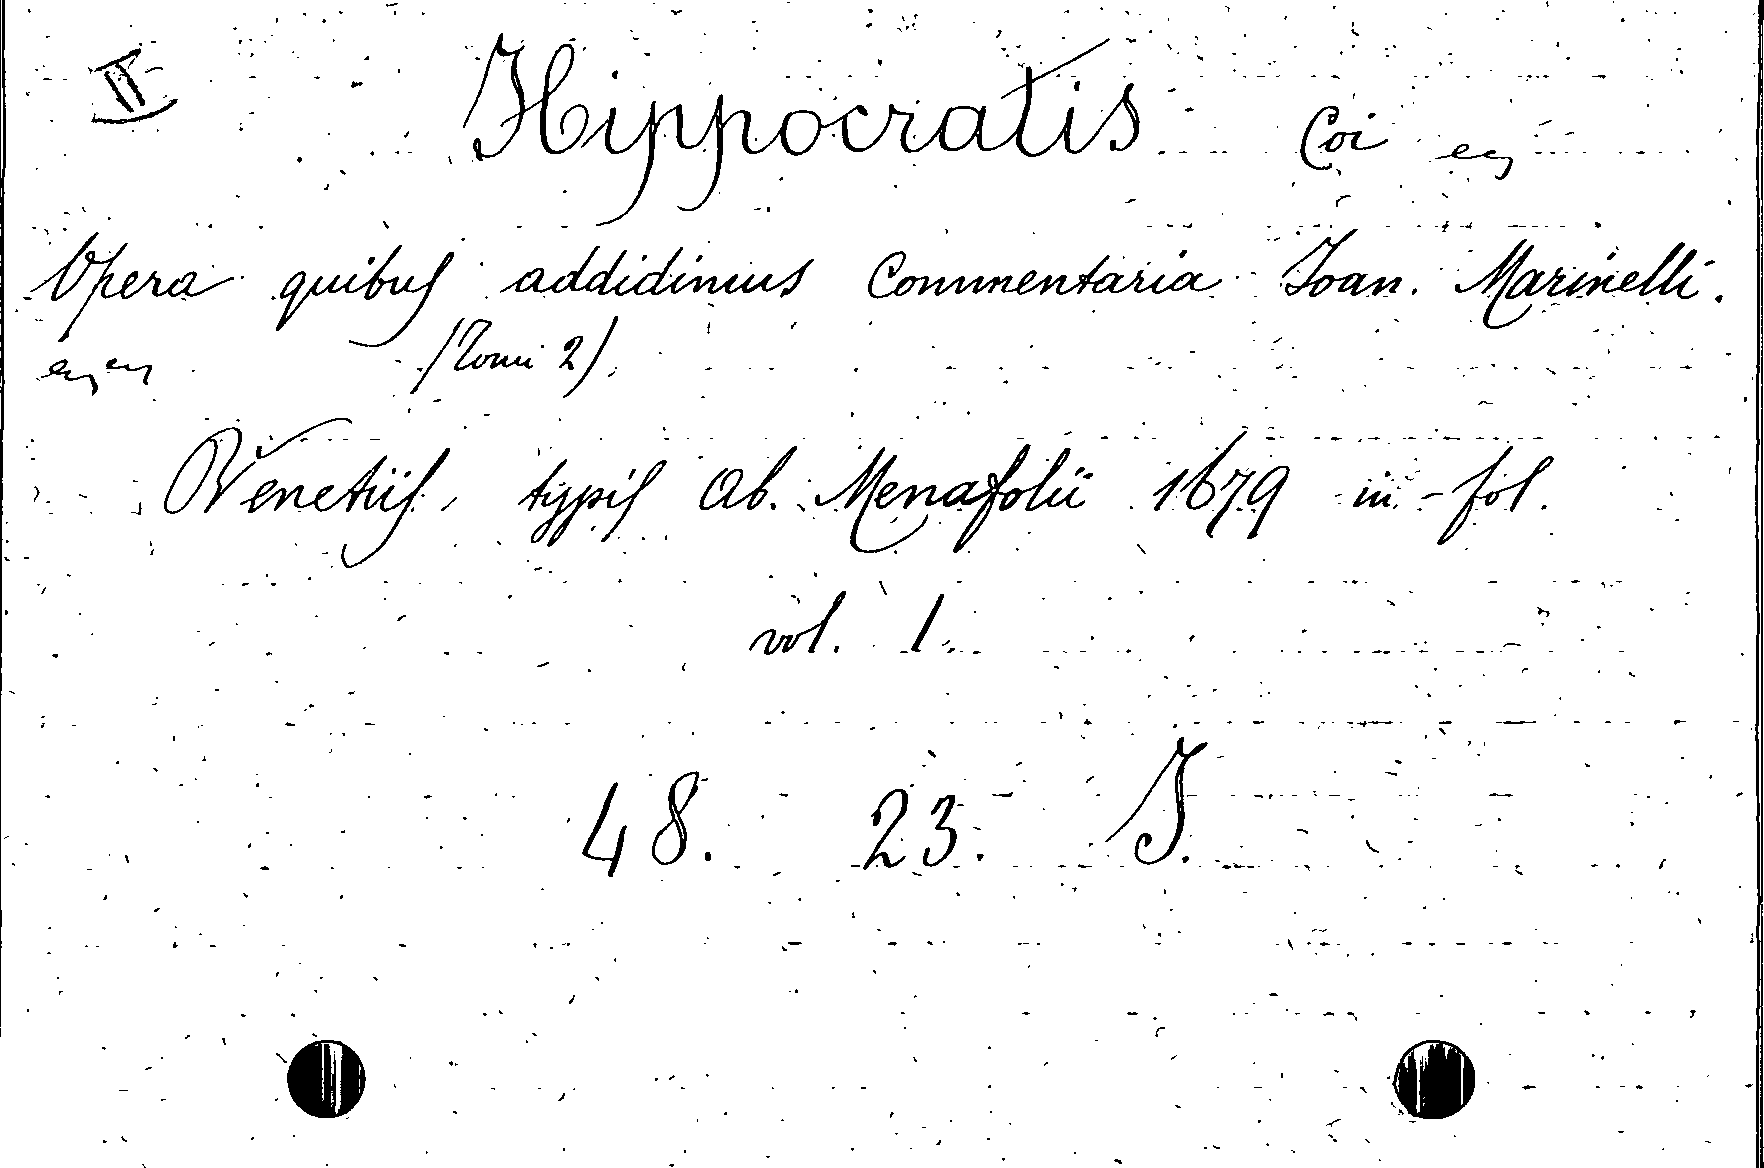 II Hippocratis Coi
Opera quibus addidimus Commentaria Joan. Marinelli.
(Tomi 2)
Venetiis, typis Ab. Menafolii 1679 in-fol.
vol. 1.
48. 23. J.